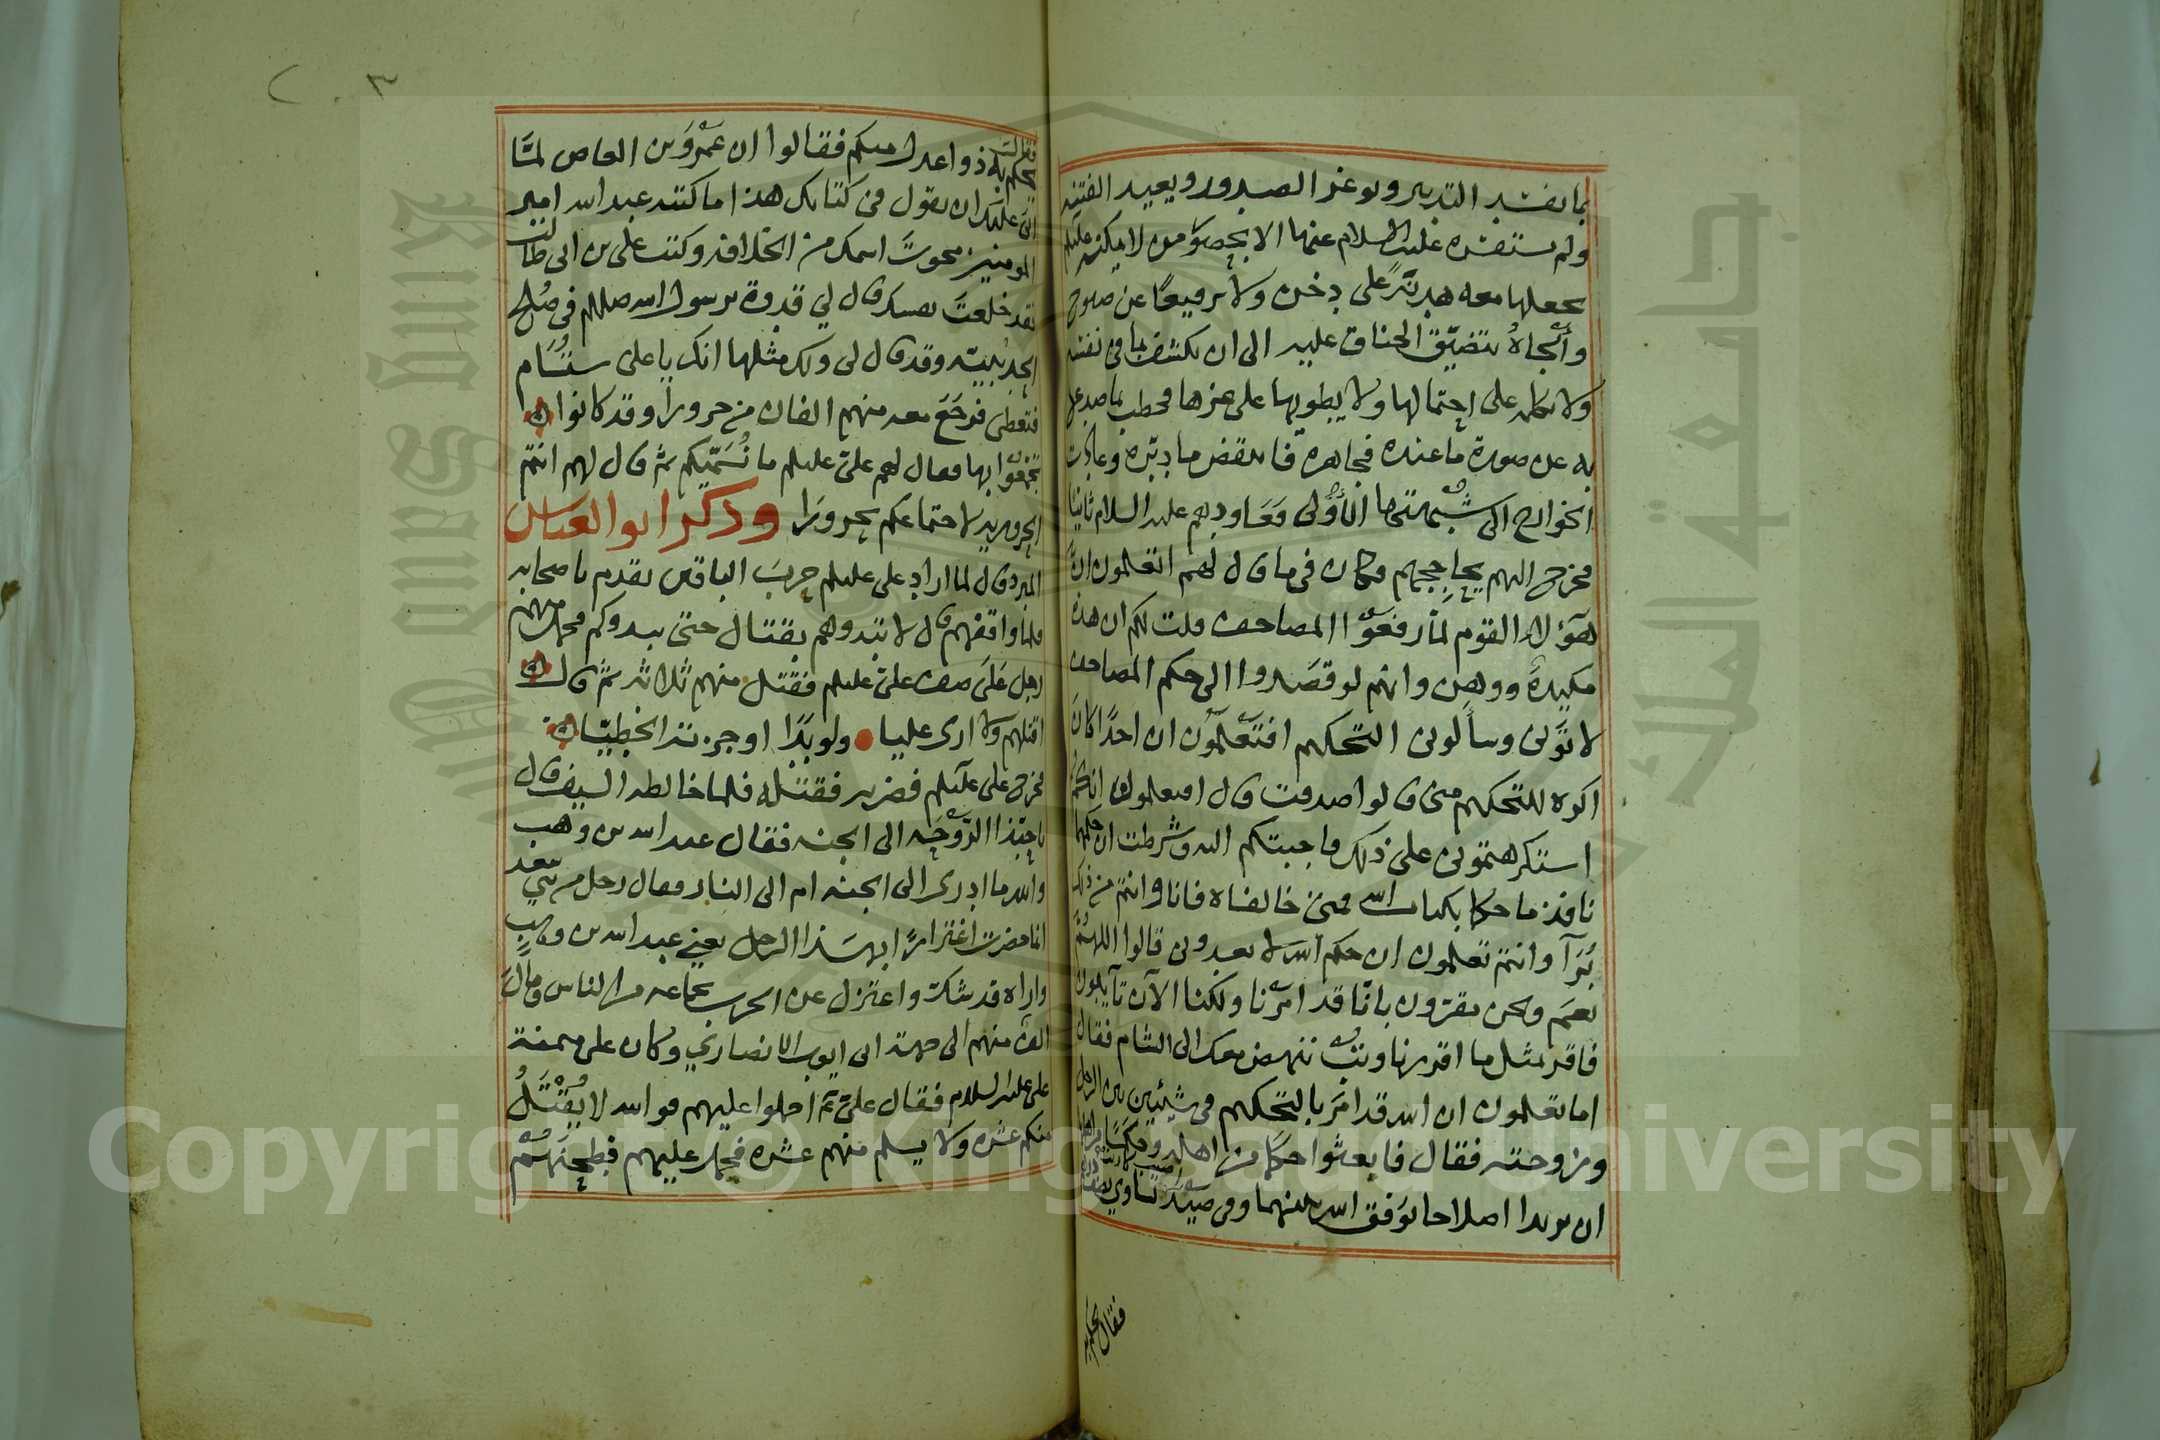 بما يفسد التدبير ويوغر الصدور ويعيد الفتنه
ولم يستفسره عليه السلام عنها الا بحضور من لا يمكنه
يجعلها معه هدنة على دخن ولا ترقيعا عن صبوح
وألجاه بتضيق الخناق عليه الى ان يكشف ما في نفسه
ولا على احتمالها ولا يطويها على غرها فخطب بما صدع
به عن صورة ما عنده مجاهرة فانتقض ما دبّره وعادت
الخوارج الى شبهتها الأولى فعاودهم عليه السلام ثانيا
فخرج اليهم يحاججهم فكان في ما قال لهم اتعلمون ان
هؤلاء القوم لما رفعوا المصاحف قلت لكم ان هذه
مكيدة ووهن وانهم لو قصدوا الى حكم المصاحف
لاتوني وسألوني التحكيم افتعلمون ان احدًا كان
اكره للتحكيم مني قالوا صدقت قال افتعلمون انكم
استكرهتموني على ذلك فاجبتكم اليه وشرطت ان حكمهما
نافذ ما حكما بكتاب الله فمتى خالفاه فانا وانتم من ذلك
بُرَآ وانتم تعلمون ان حكم الله لا يعدوني قالوا اللهم
نعم ونحن مقرّون بانّا قد امرنا ولكنا الآن تآيبون
فاقر بمثل ما اقررنا وتب ننهض معك الى الشام فقال
اما تعلمون ان الله قد امر بالتحكيم في شيئين بين الرجل
وزوجته فقال فابعثوا حكما من اهله وحكما من اهلها
ان يريدا اصلاحا يوفق الله بينهما وفي صيد تساوي
فقال يحكم به
٢٠٣
فقالت
يحكم به ذوا عدل منكم فقالوا ان عمرو بن العاص لمّا
ابى عليك ان يقول في كتابك هذا ما كتبه عبد الله امير
المومنين محوتَ اسمك من الخلافة وكتبت على بن ابي طالب
فقد خلعتَ نفسك قال لي قدوة برسول الله صللم في صُلح
الحديبية وقد قال لى ولك مثلها انك يا على ستسام
فتعطى فرجع معه منهم الفان من حرورا وقد كانوا
تجمعوا بها فقال لهم على عليلم ما نُسمّيكم ثم قال لهم انتم
الحروريه لاجتماعكم بحرورا وذكر ابو العباس
المبرد قال لما اراد على عليلم حربَ الباقين تقدم باصحابه
فلما واقفهم قال لا تبدوهم بقتال حتى يبدوكم فحمل منهم
رجل على صف على عليلم فقتل منهم ثلاثه ثم قال
اقتلهم ولا ارى عليا ولو بَدَا اوجرته الخطيّا
فخرج على عليلم فضربه فقتله فلما خالطه السيف قال
يا حبّذا الرَّوْحَه الى الجنه فقال عبد الله بن وهب
والله ما ادرى الى الجنه ام الى النار فقال رجل من بني سعد
انما حضرت اغترارًا بهذا الرجل يعني عبد الله بن وهب
واراه قد شك واعتزل عن الحرب بجماعه من الناس ومال
الف منهم الى جهة ابى ايوب الانصاري وكان على ميمنة
على عليه السلام فقال على احملوا عليهم فو الله لا يُقْتَلُ
منكم عشره ولا يسلم منهم عشره فحمل عليهم فطحنهم
King Saud University
جامعة الملك سعود
Copyright © King Saud University